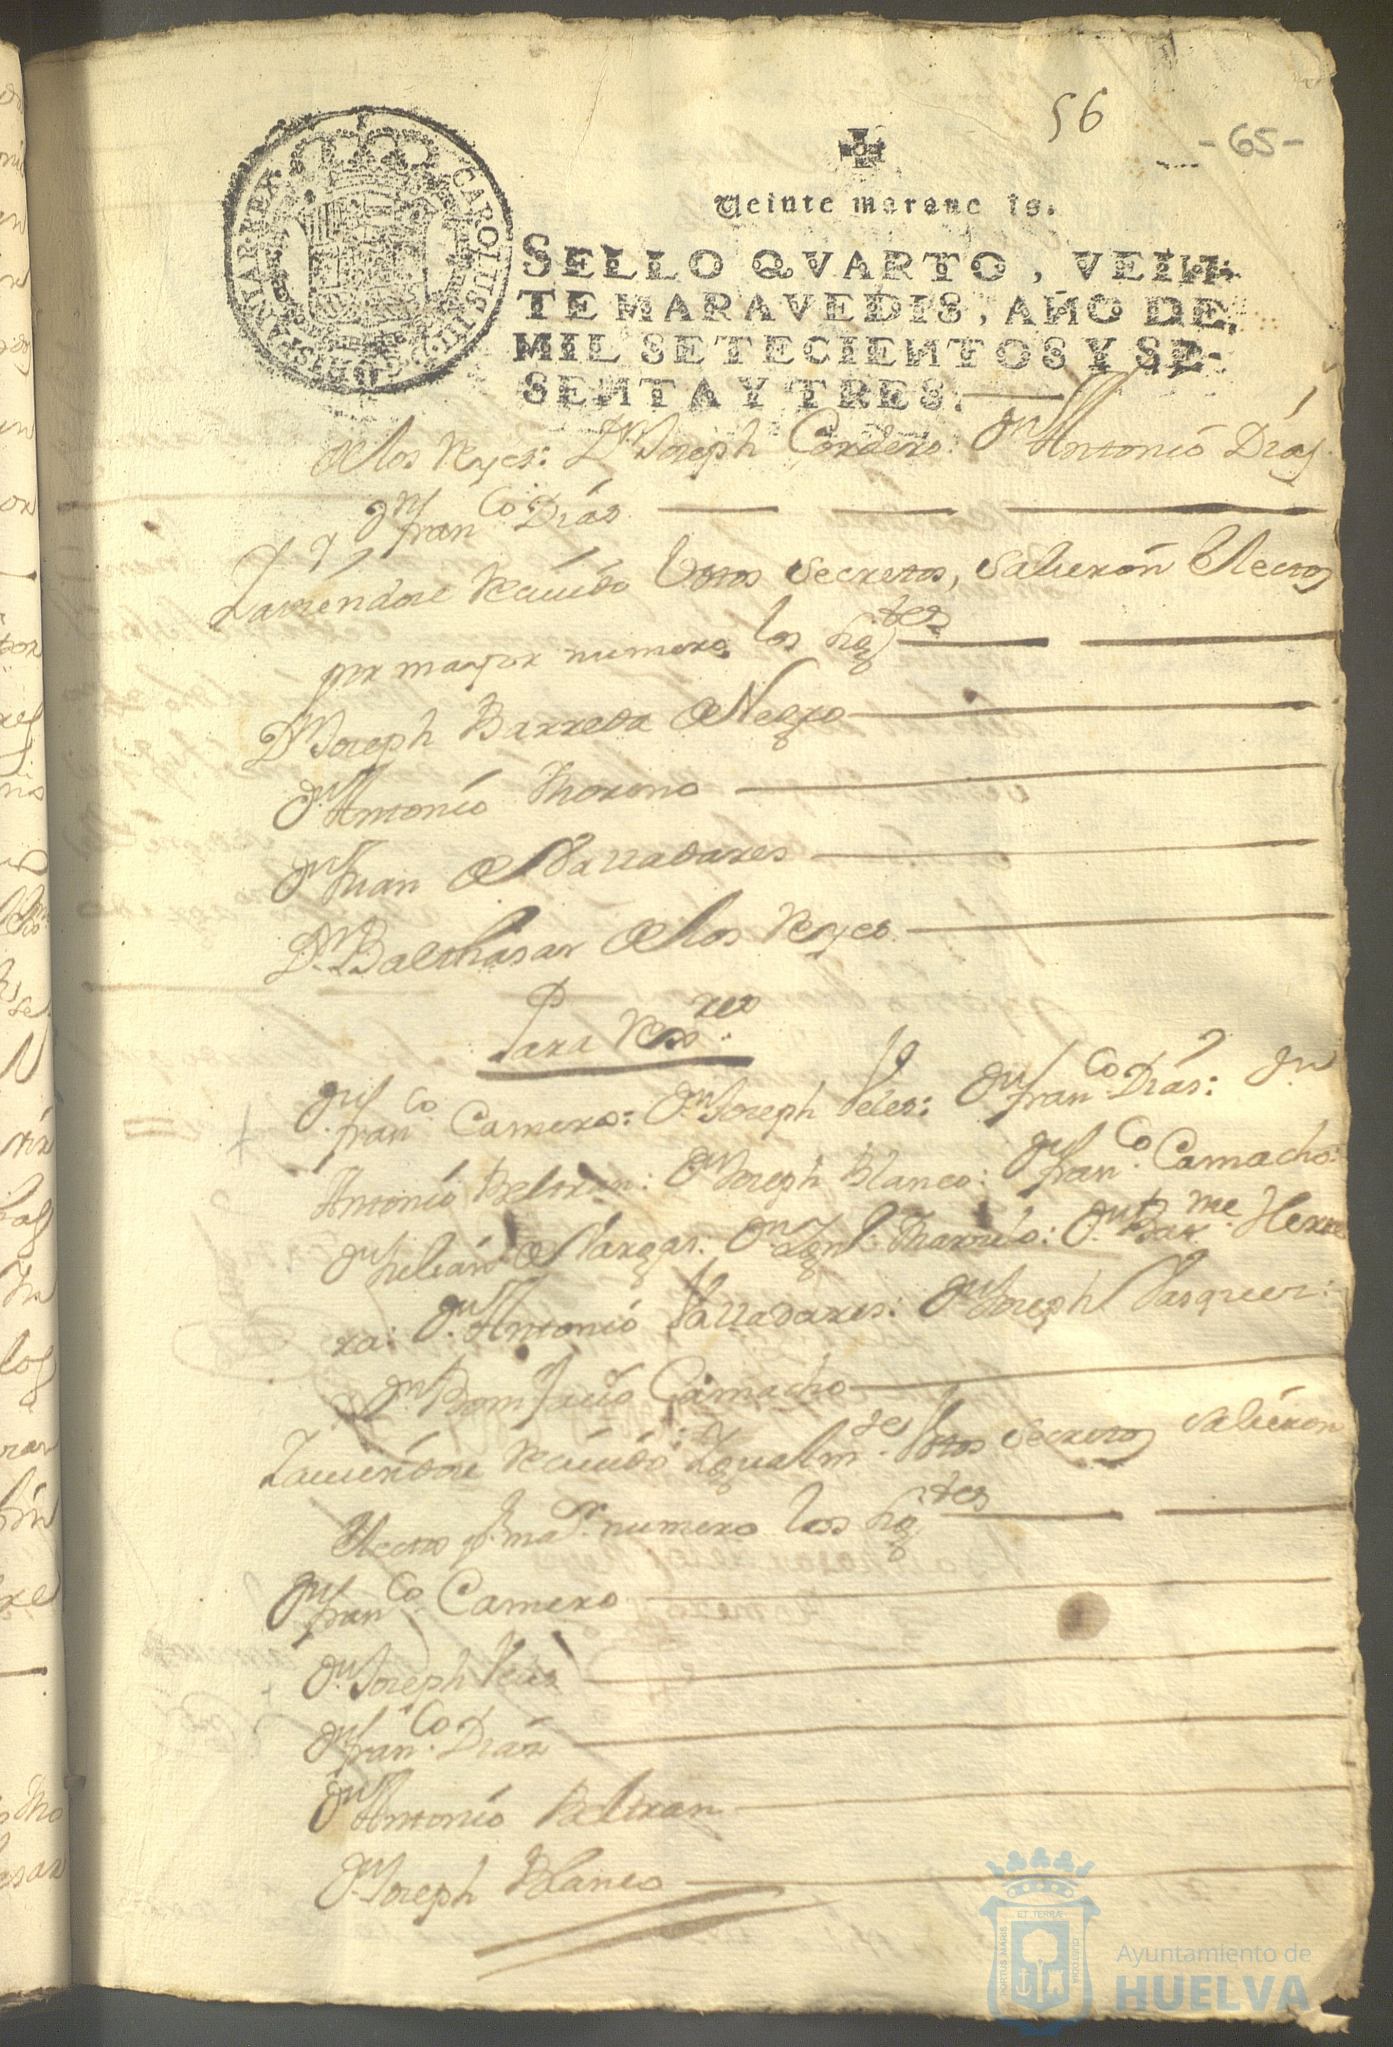 56
-65-
Veinte marave is.
SELLO QVARTO, VEIN-
TE MARAVEDIS, AÑO DE
MIL SETECIENTOS Y SE-
SENTA Y TRES.
CAROLUS III D G HISPANIAR REX
de los Reyes: Dn Joseph Cordero: Dn Antonio Días
Dn Franco Días
Y aviendose recivido Votos Secretos, salieron Electos
por mayor numero los sigtes
Dn Joseph Barreda de Negro
Dn Antonio Moreno
Dn Juan de Valladares
Dn Balthasar de los Reyes
Para Rexres
Dn Franco Camero: Dn Joseph Veles: Dn Franco Días: Dn
Antonio Beltran: Dn Joseph Blanco: Dn Franco Camacho:
Dn Julián de Vargas: Dn Ign Dn Barme Herre
ra: Dn Antonio Valladares: Dn Joseph Vasquez:
Dn Bonifacio Camacho
Y aviendose recivido Ygualmte Votos Secretos salieron
Electos pr mar numero los sigtes
Dn Franco Camero
Dn Joseph Veles
Dn Franco Días
Dn Antonio Beltran
Dn Joseph Blanco
PORTUS MARIS ET TERRÆ CUSTODIA
Ayuntamiento de
HUELVA